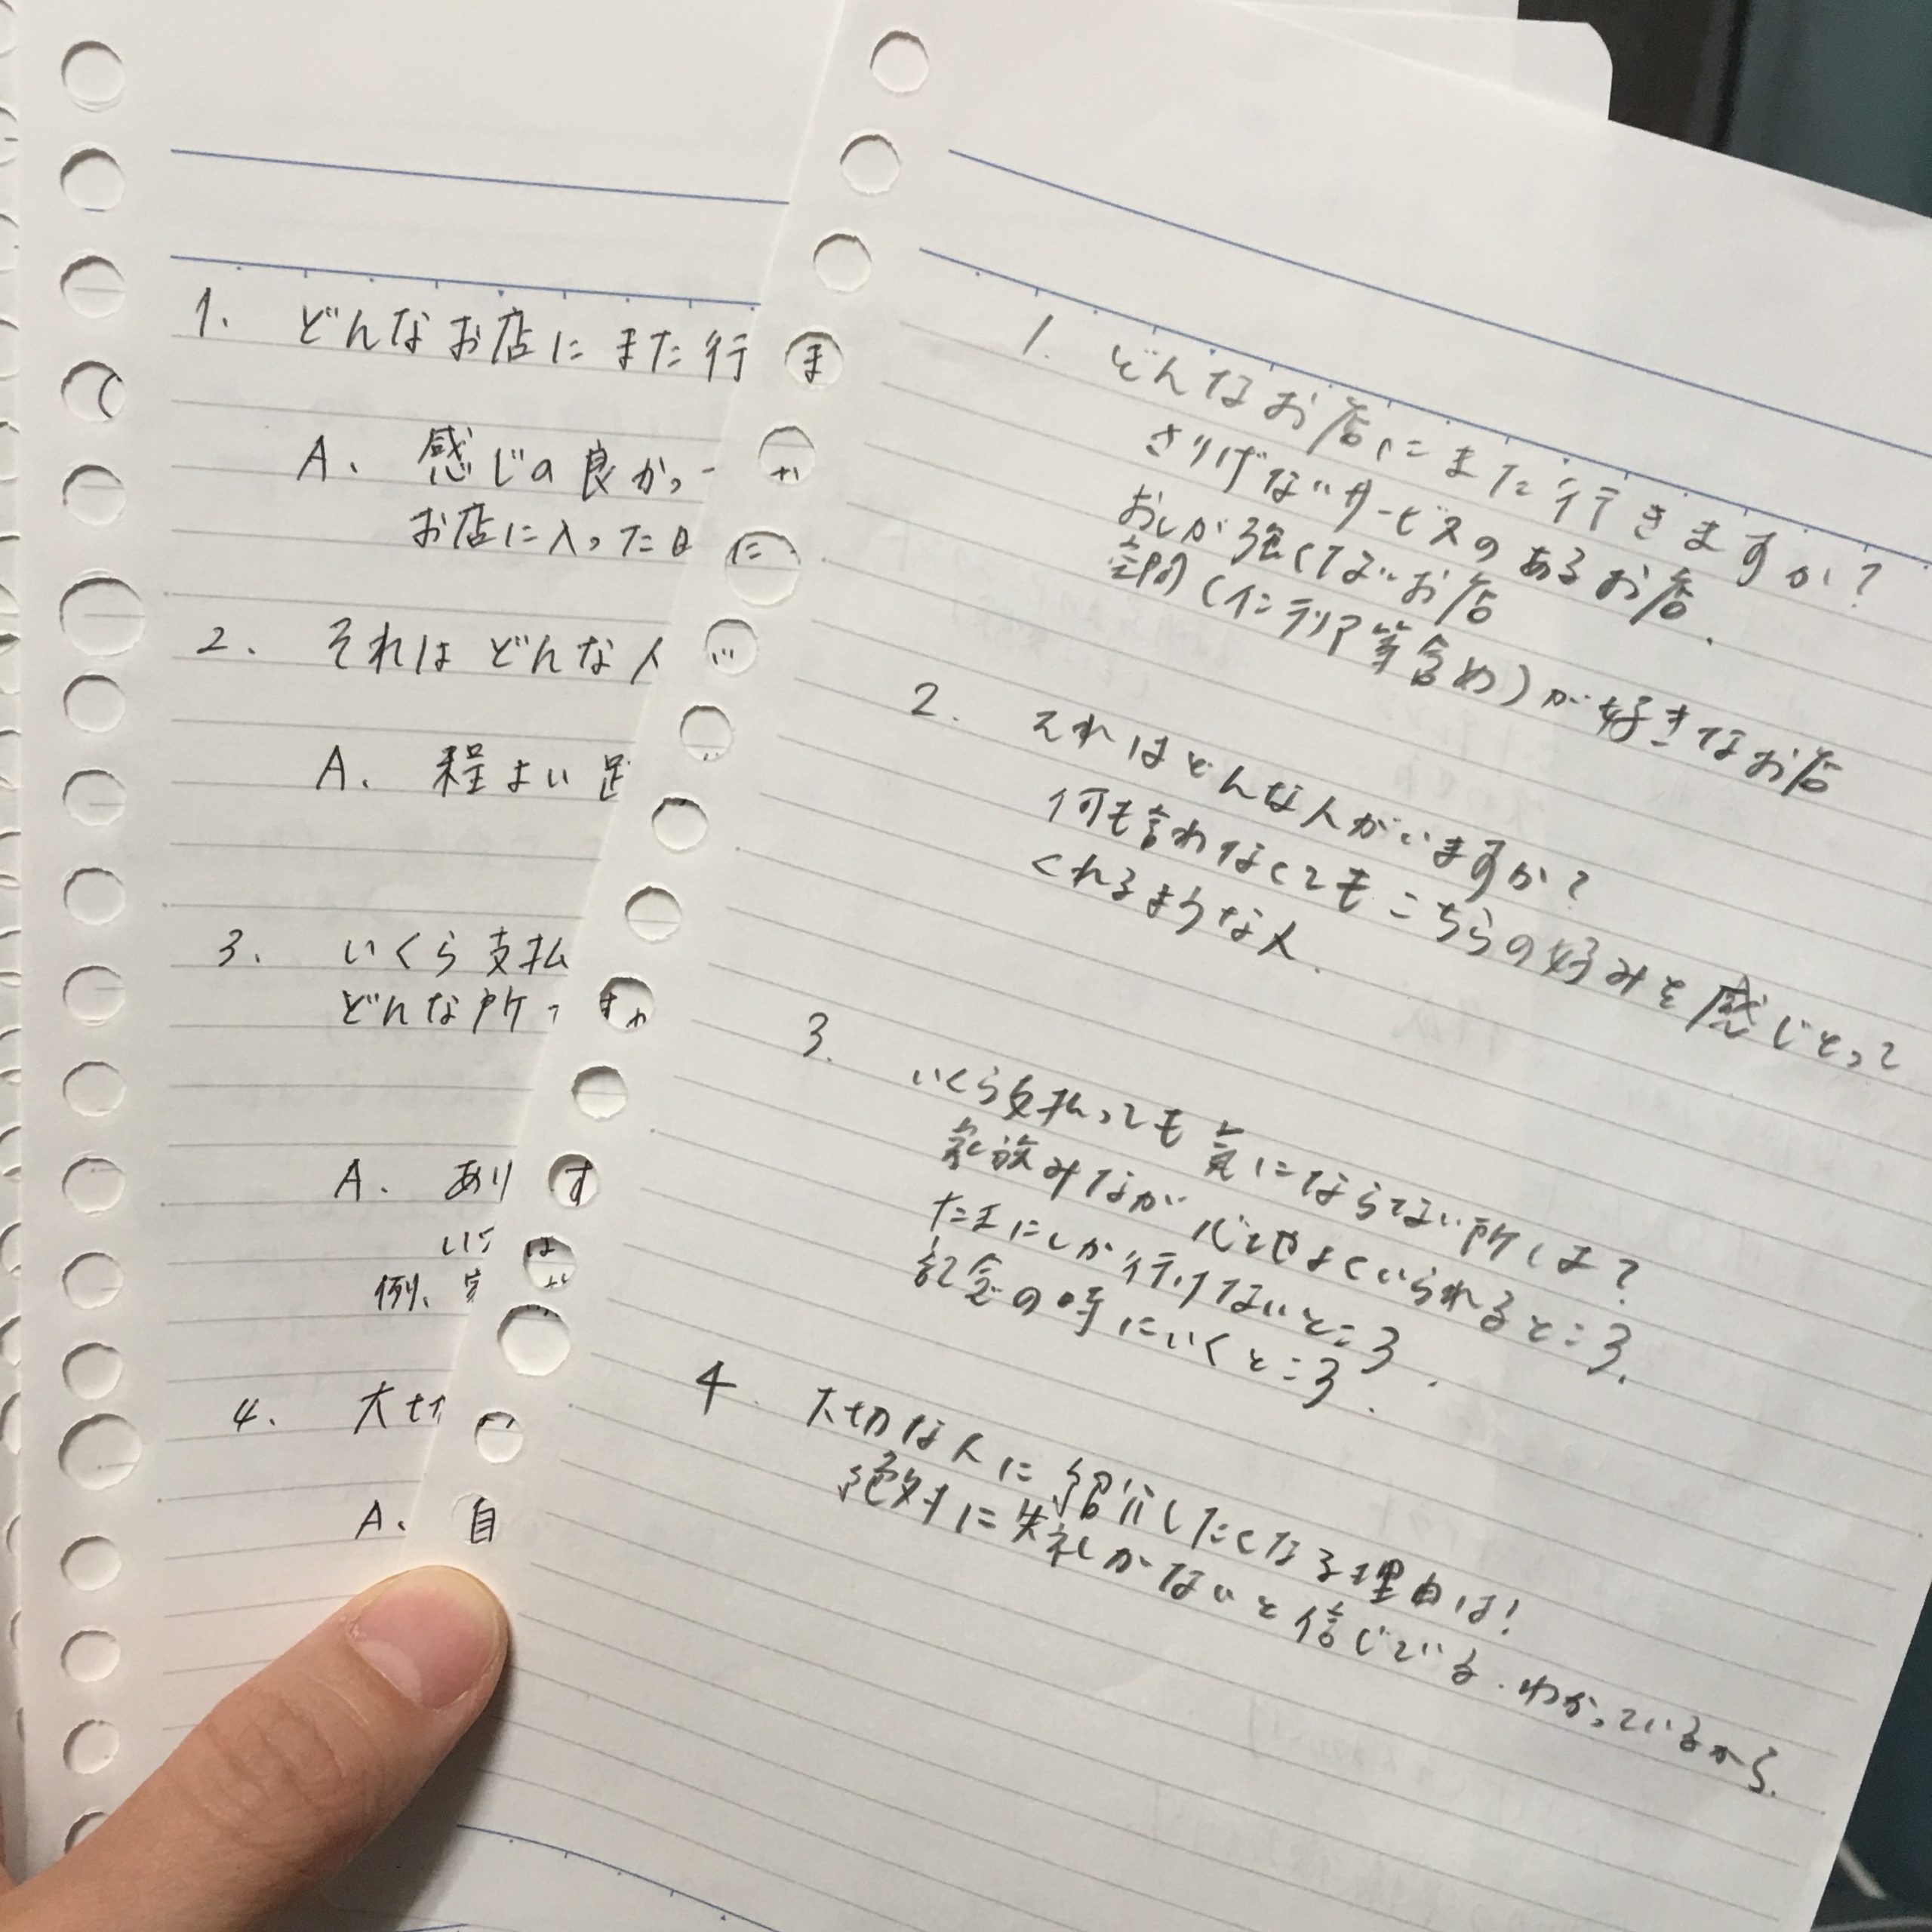 1. どんなお店にまた行
A. 感じの良かっ
お店に入った
2. それはどんな人
A. 程よい
3. いくら支払
どんな所
A. あり
例、
4. 大切
A. 自
1. どんなお店にまた行きますか?
さりげないサービスのあるお店.
おしが強くないお店
空間(インテリア等含め)が好きなお店
2. それはどんな人がいますか?
何も言わなくてもこちらの好みを感じとって
くれるような人.
3. いくら支払っても気にならない所しは?
家族みなが心地よくいられるところ.
たまにしか行けないところ.
記念の時にいくところ.
4. 大切な人に紹介したくなる理由は!
絶対に失礼がないと信じている.わかっているから.